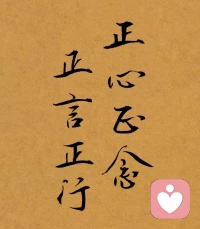 正心正念
正言正行